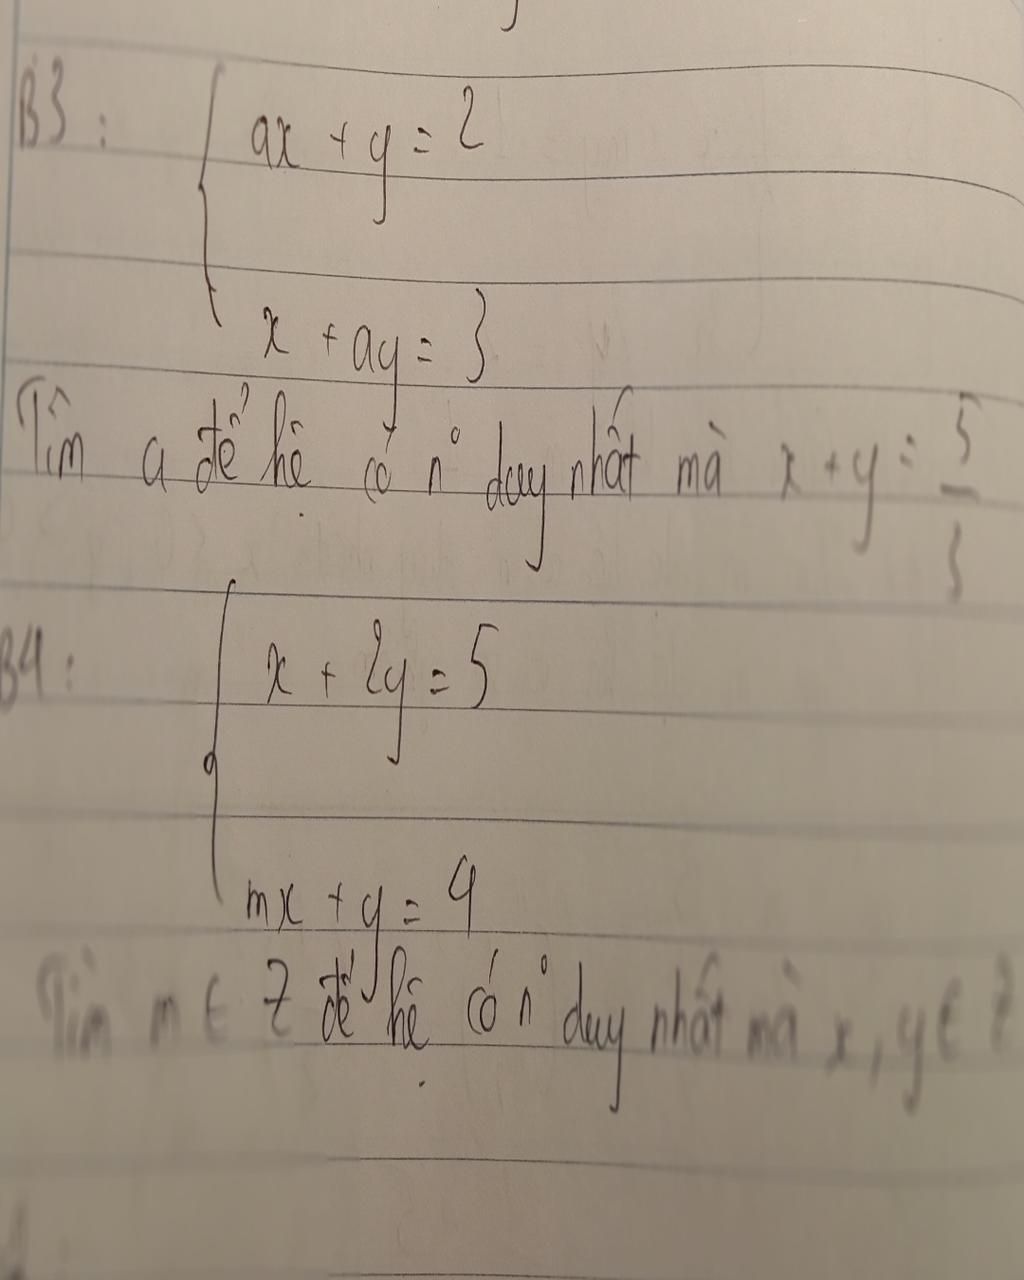 B3:
ax + y = 2
x + ay = 3
Tìm a để hệ có n° duy nhất mà x + y = 5/3
B4:
x + 2y = 5
mx + y = 4
Tìm m ∈ Z để hệ có n° duy nhất mà x, y ∈ Z